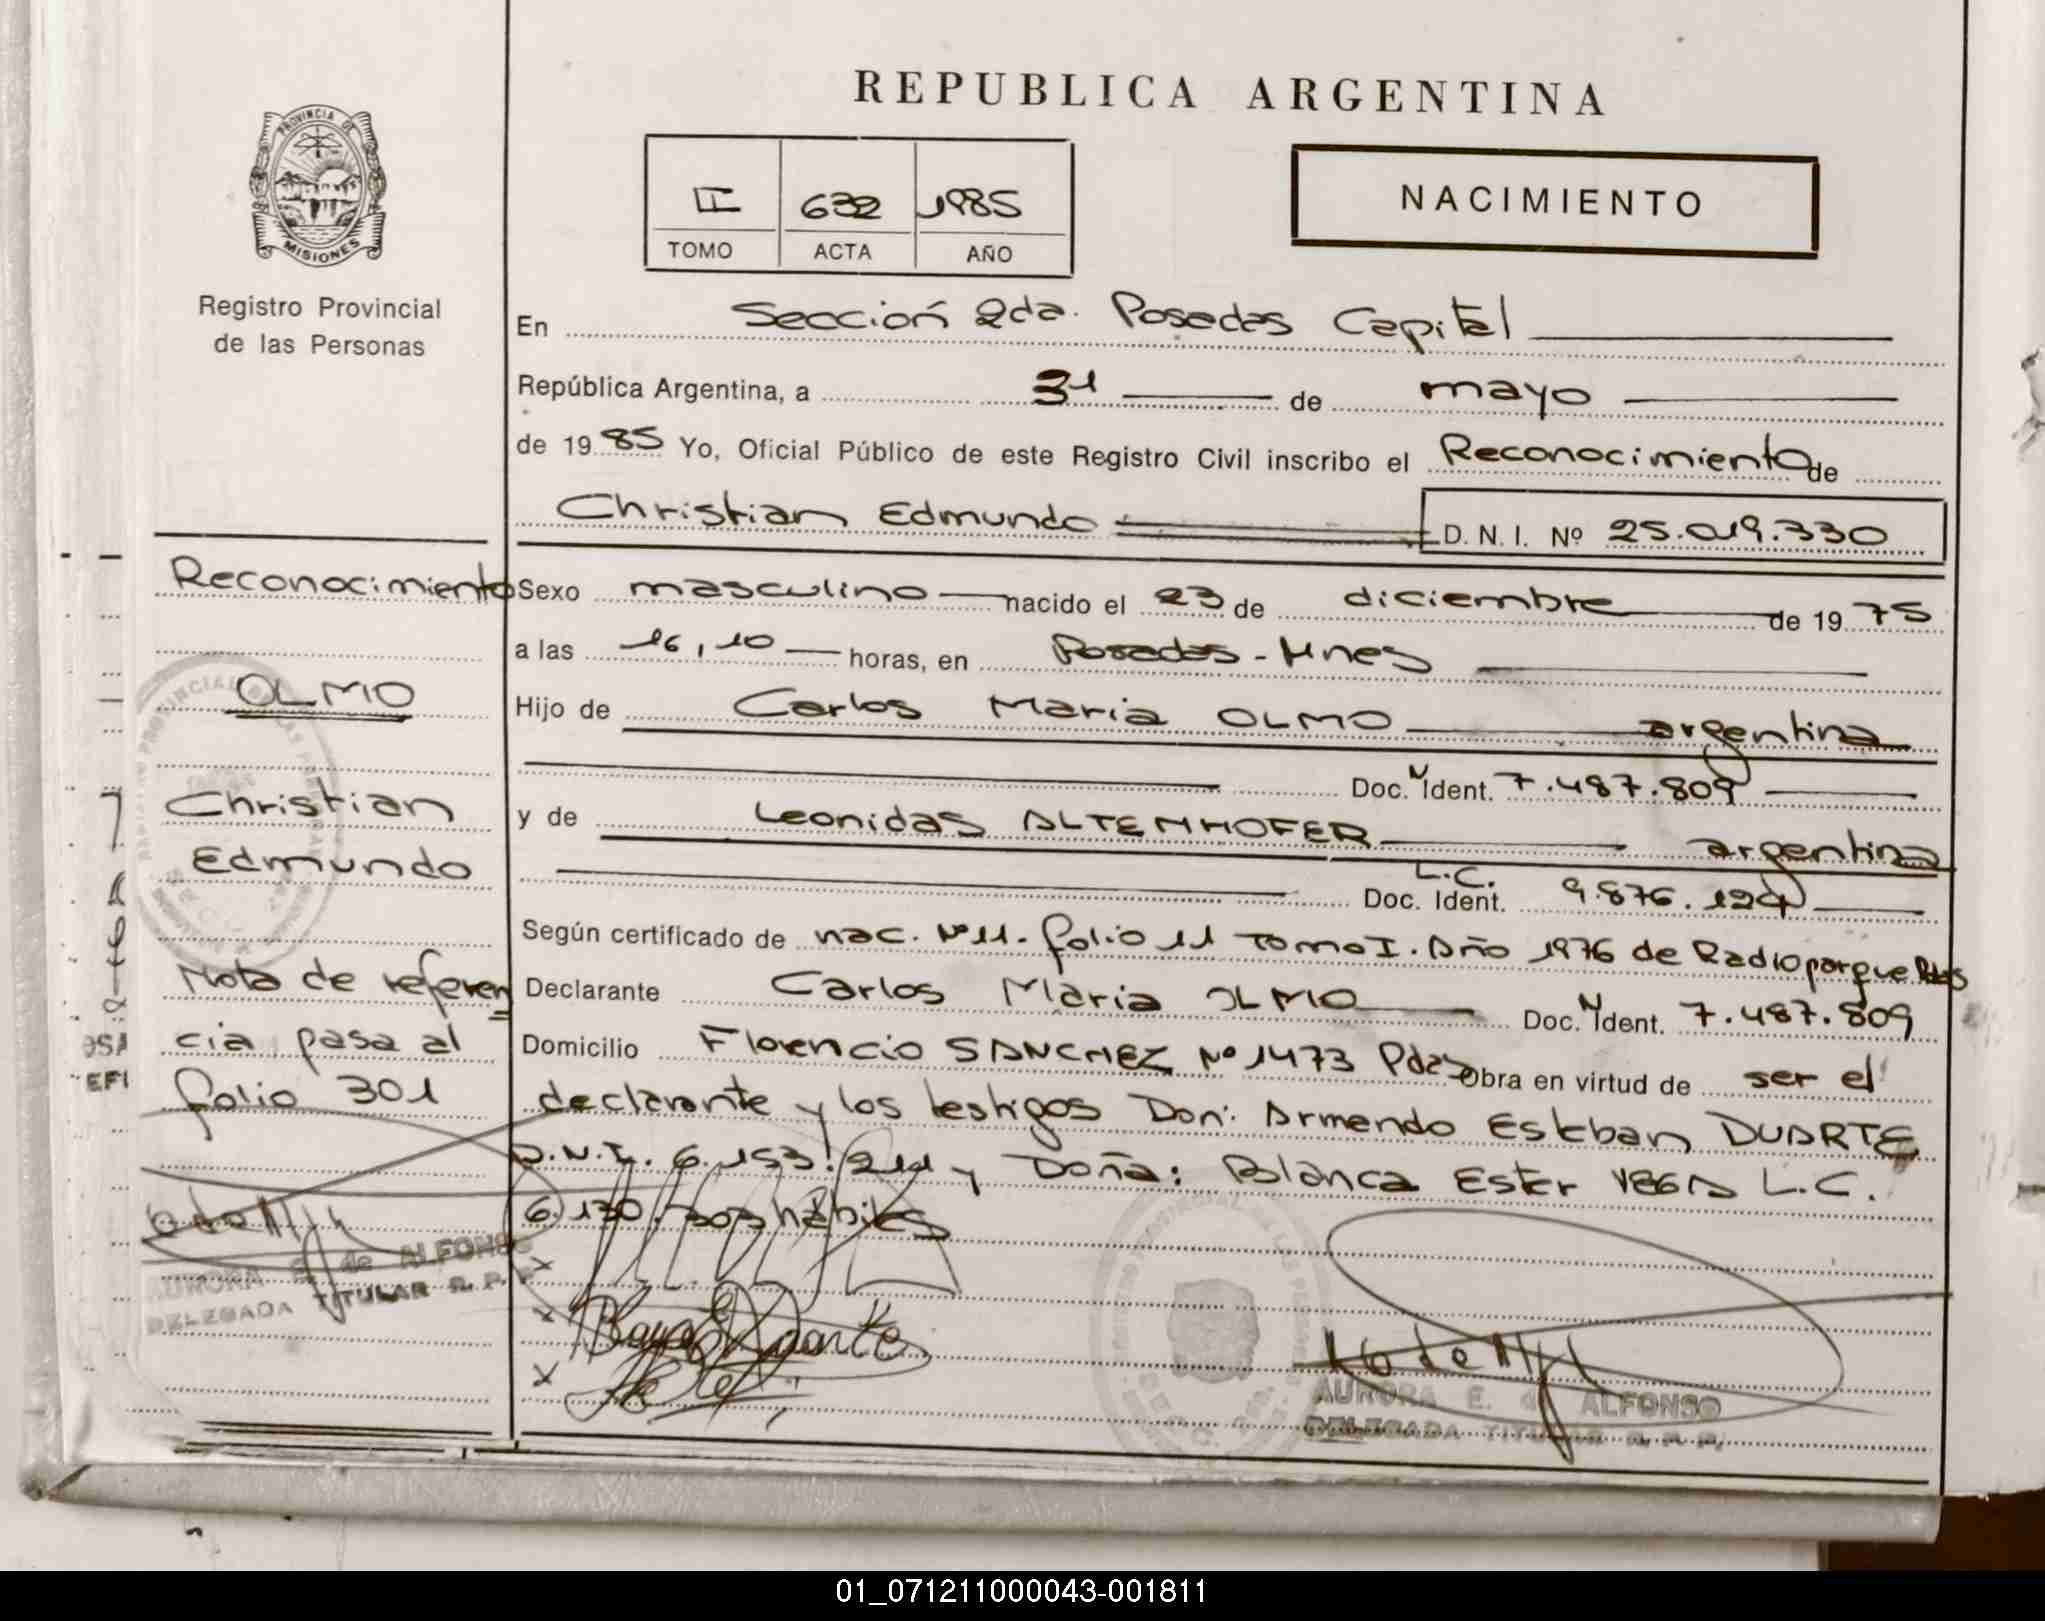 REPUBLICA ARGENTINA
PROVINCIA DE
MISIONES
Registro Provincial
de las Personas
II 632 1985
TOMO ACTA AÑO
NACIMIENTO
En Sección 2da. Posadas Capital
República Argentina, a 31 de mayo
de 1985 Yo, Oficial Público de este Registro Civil inscribo el Reconocimiento de
Christian Edmundo D. N. I. Nº 25.019.330
Sexo masculino nacido el 23 de diciembre de 1975
a las 16,10 horas, en Posadas - Mnes
Hijo de Carlos Maria OLMO argentina
Doc. Ident. 7.487.809
y de Leonidas ALTENHOFER argentina
L.C.
Doc. Ident. 9.876.124
Según certificado de nac. Nº 11. folio 11 Tomo I. Año 1976 de Radioparque Pdas
Declarante Carlos Maria OLMO Doc. Ident. 7.487.809
Domicilio Florencio SANCHEZ Nº 1473 Pdas Obra en virtud de ser el
declarante y los testigos Don: Armando Esteban DUARTE
D.N.I. 6.153.211 y Doña: Blanca Ester VEGA L.C.
6.130.303 hábiles
Reconocimiento
OLMO
Christian
Edmundo
Nota de referen
cia pasa al
folio 301
AURORA E. de ALFONSO
DELEGADA TITULAR R. P. P.
AURORA E. de ALFONSO
DELEGADA TITULAR R. P. P.
01_071211000043-001811